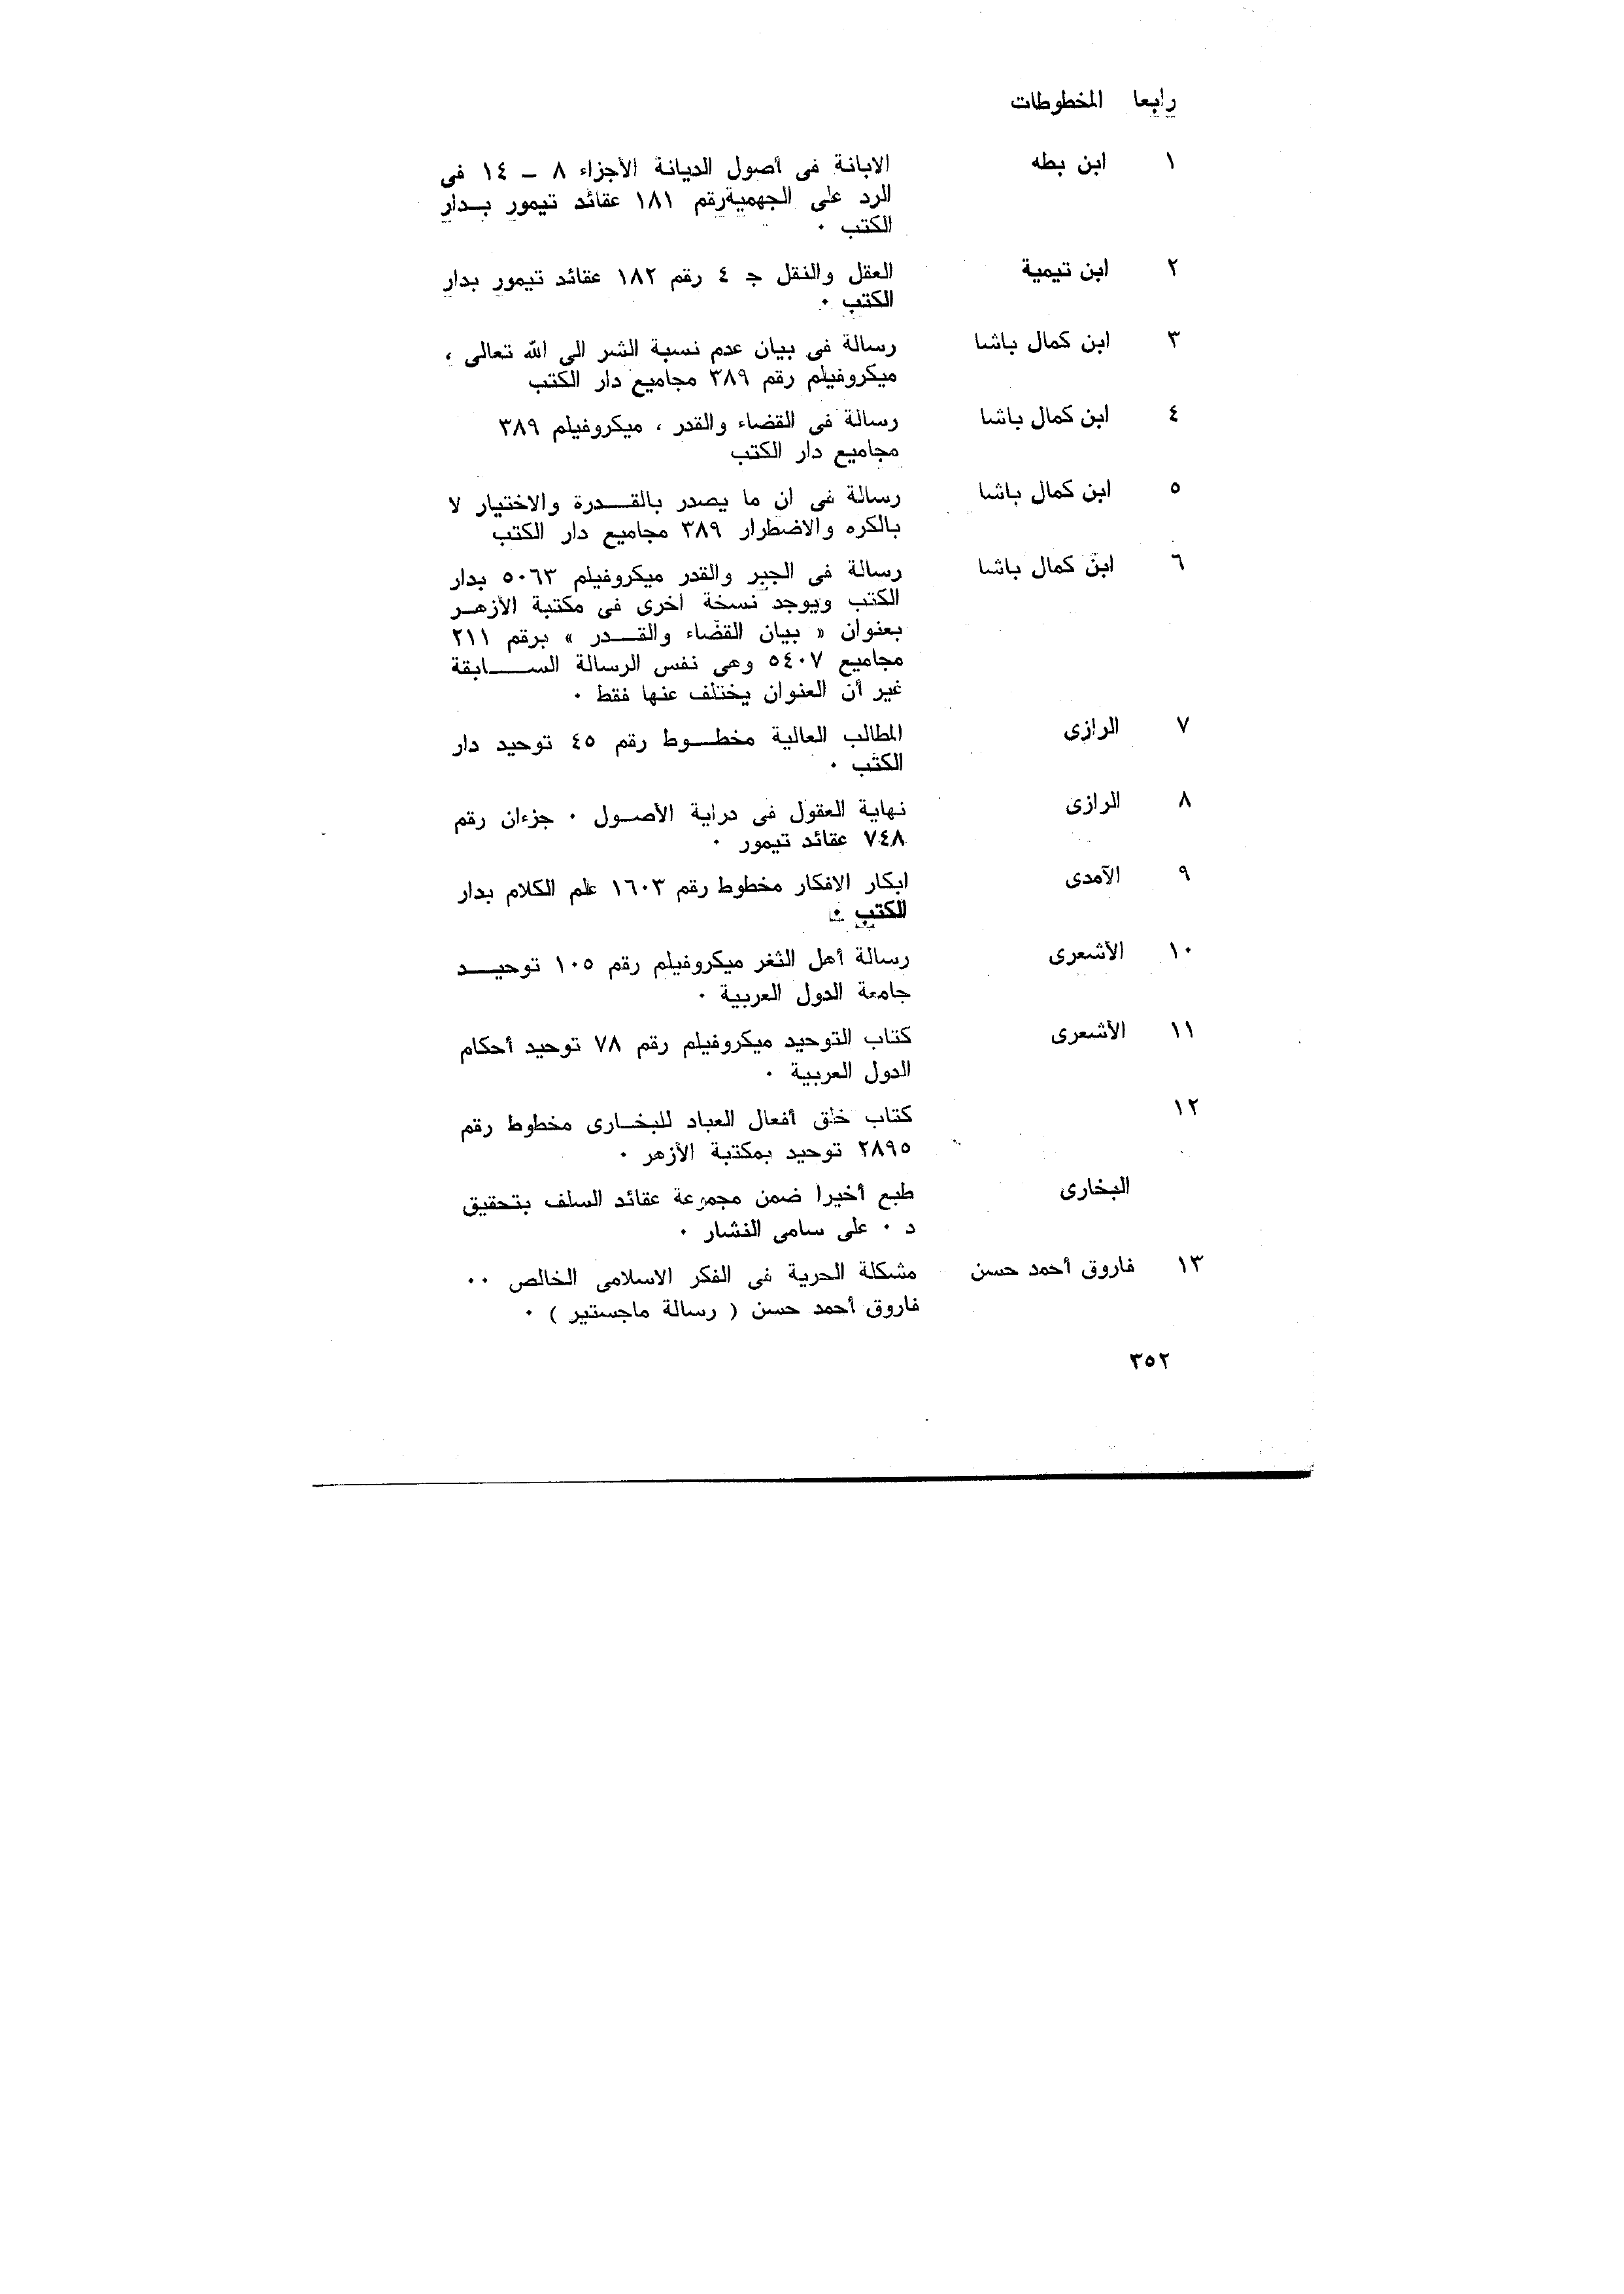 رابعا المخطوطات
١ ابن بطه الابانة فى أصول الديانة الأجزاء ٨ ـ ١٤ فى
الرد على الجهمية رقم ١٨١ عقائد تيمور بـدار
الكتب ٠
٢ ابن تيمية العقل والنقل جـ ٤ رقم ١٨٢ عقائد تيمور بدار
الكتب ٠
٣ ابن كمال باشا رسالة فى بيان عدم نسبة الشر الى الله تعالى ،
ميكروفيلم رقم ٣٨٩ مجاميع دار الكتب
٤ ابن كمال باشا رسالة فى القضاء والقدر ، ميكروفيلم ٣٨٩
مجاميع دار الكتب
٥ ابن كمال باشا رسالة فى ان ما يصدر بالقـــدرة والاختيار لا
بالكره والاضطرار ٣٨٩ مجاميع دار الكتب
٦ ابن كمال باشا رسالة فى الجبر والقدر ميكروفيلم ٥٠٦٣ بدار
الكتب ويوجد نسخة اخرى فى مكتبة الأزهـر
بعنوان « بيان القضاء والقـــدر » برقم ٢١١
مجاميع ٥٤٠٧ وهى نفس الرسالة الســـابقة
غير أن العنوان يختلف عنها فقط ٠
٧ الرازى المطالب العالية مخطـوط رقم ٤٥ توحيد دار
الكتب ٠
٨ الرازى نهاية العقول فى دراية الأصـول ٠ جزءان رقم
٧٤٨ عقائد تيمور ٠
٩ الآمدى ابكار الافكار مخطوط رقم ١٦٠٣ علم الكلام بدار
الكتب ٠
١٠ الأشعرى رسالة أهل الثغر ميكروفيلم رقم ١٠٥ توحيـــد
جامعة الدول العربية ٠
١١ الأشعرى كتاب التوحيد ميكروفيلم رقم ٧٨ توحيد أحكام
الدول العربية ٠
١٢ كتاب خلق أفعال العباد للبخـارى مخطوط رقم
٢٨٩٥ توحيد بمكتبة الأزهر ٠
البخارى طبع أخيرا ضمن مجموعة عقائد السلف بتحقيق
د ٠ على سامى النشار ٠
١٣ فاروق أحمد حسن مشكلة الحرية فى الفكر الاسلامى الخالص ٠٠
فاروق أحمد حسن ( رسالة ماجستير ) ٠
٣٥٢